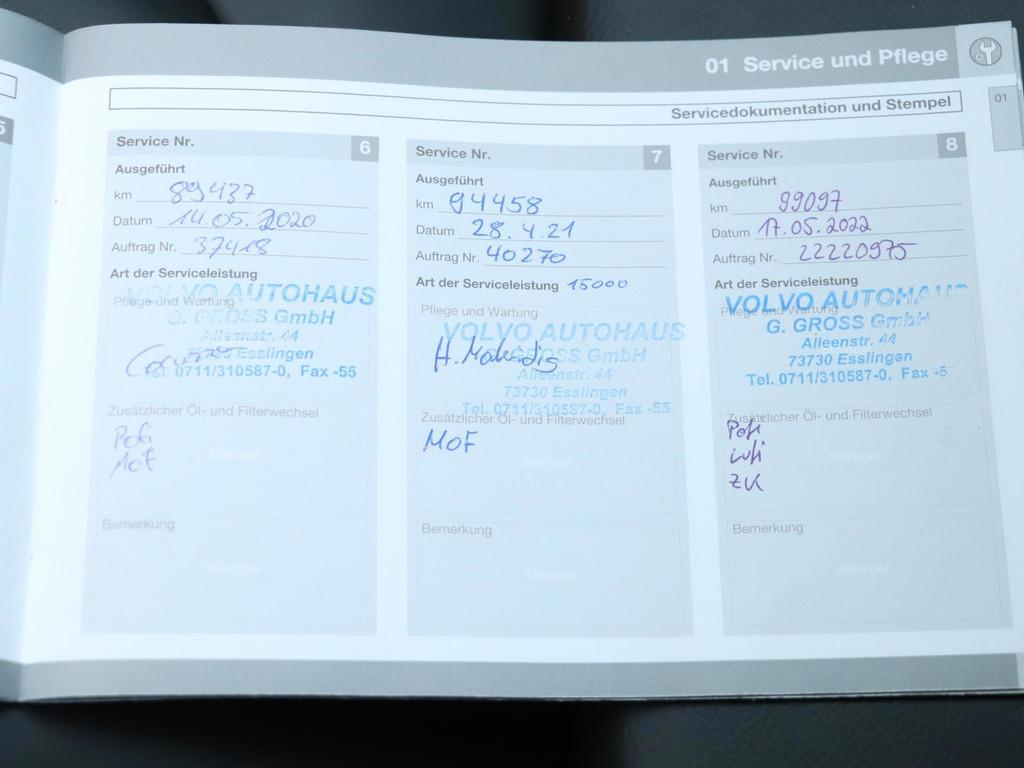 01 Service und Pflege
Servicedokumentation und Stempel
01
5
Service Nr. 6
Ausgeführt
km 89437
Datum 14.05.2020
Auftrag Nr. 37418
Art der Serviceleistung
Pflege und Wartung
VOLVO AUTOHAUS
G. GROSS GmbH
Alleenstr. 44
73730 Esslingen
Tel. 0711/310587-0, Fax -55
Zusätzlicher Öl- und Filterwechsel
Pofi
Mot
Stempel
Bemerkung
Stempel
Service Nr. 7
Ausgeführt
km 94458
Datum 28.4.21
Auftrag Nr. 40270
Art der Serviceleistung 15000
Pflege und Wartung
VOLVO AUTOHAUS
G. GROSS GmbH
Alleenstr. 44
73730 Esslingen
Tel. 0711/310587-0, Fax -55
Zusätzlicher Öl- und Filterwechsel
MOF
Stempel
Bemerkung
Stempel
Service Nr. 8
Ausgeführt
km 99097
Datum 17.05.2022
Auftrag Nr. 22220975
Art der Serviceleistung
Pflege und Wartung
VOLVO AUTOHAUS
G. GROSS GmbH
Alleenstr. 44
73730 Esslingen
Tel. 0711/310587-0, Fax -5
Zusätzlicher Öl- und Filterwechsel
Pofi
Lufi
ZK
Stempel
Bemerkung
Stempel